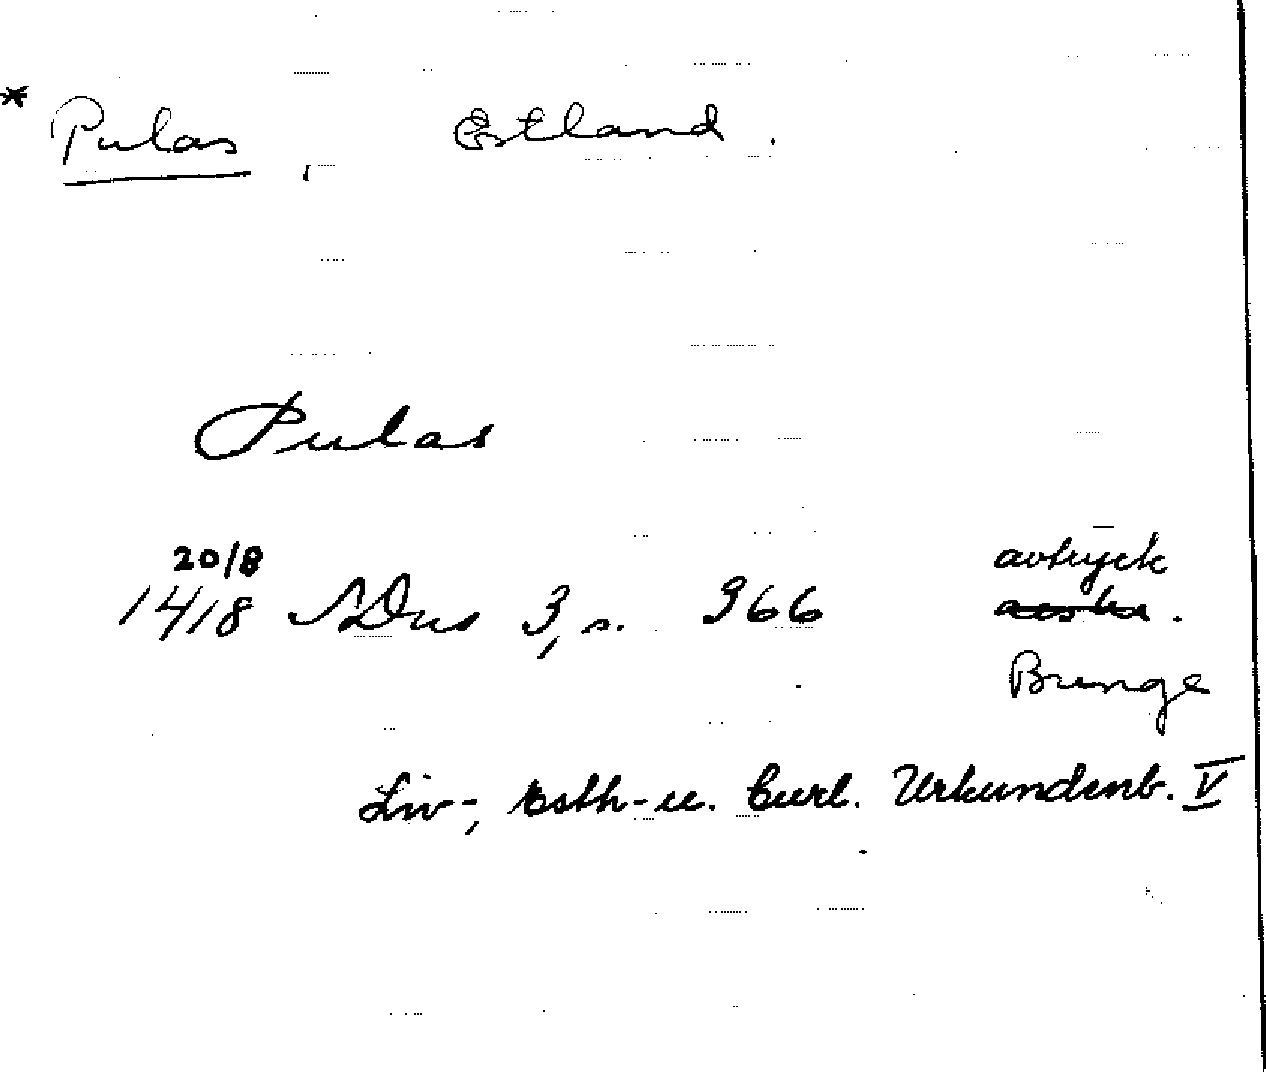 * Pulas, Estland.
Pulas
20/8
1418 SDns 3, s. 366 avtryck
Bunge
Liv-, Esth- u. Curl. Urkundenb. V